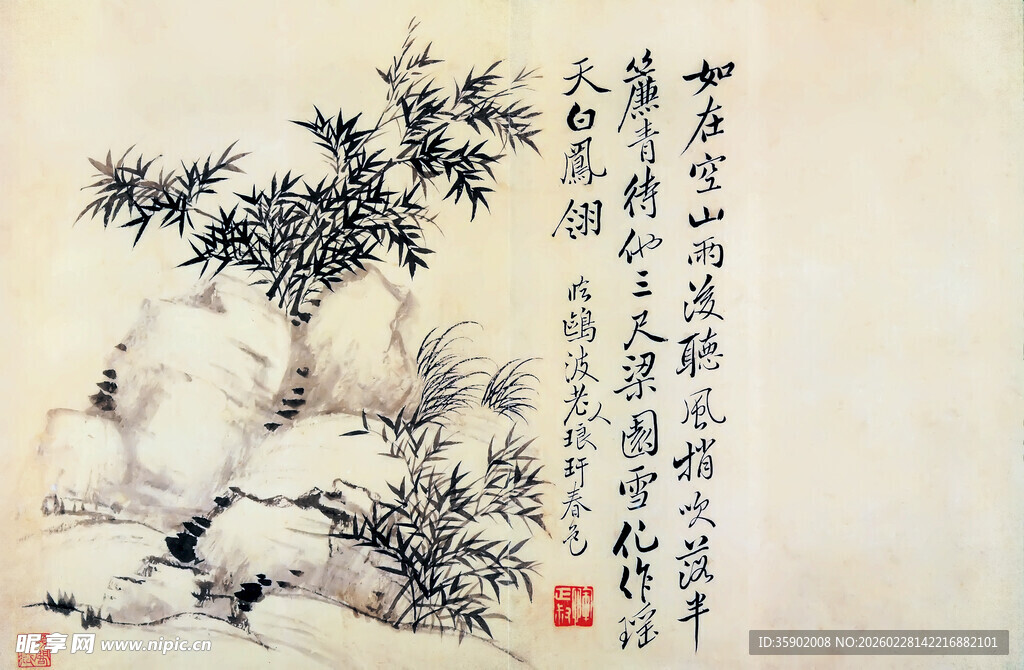 如在空山雨後聽風梢吹落半
簾青待他三尺梁園雪化作瑶
天白鳳翎
鷗波老人琅玕春色
昵享网 www.nipic.cn
ID:35902008 NO:20260228142216882101